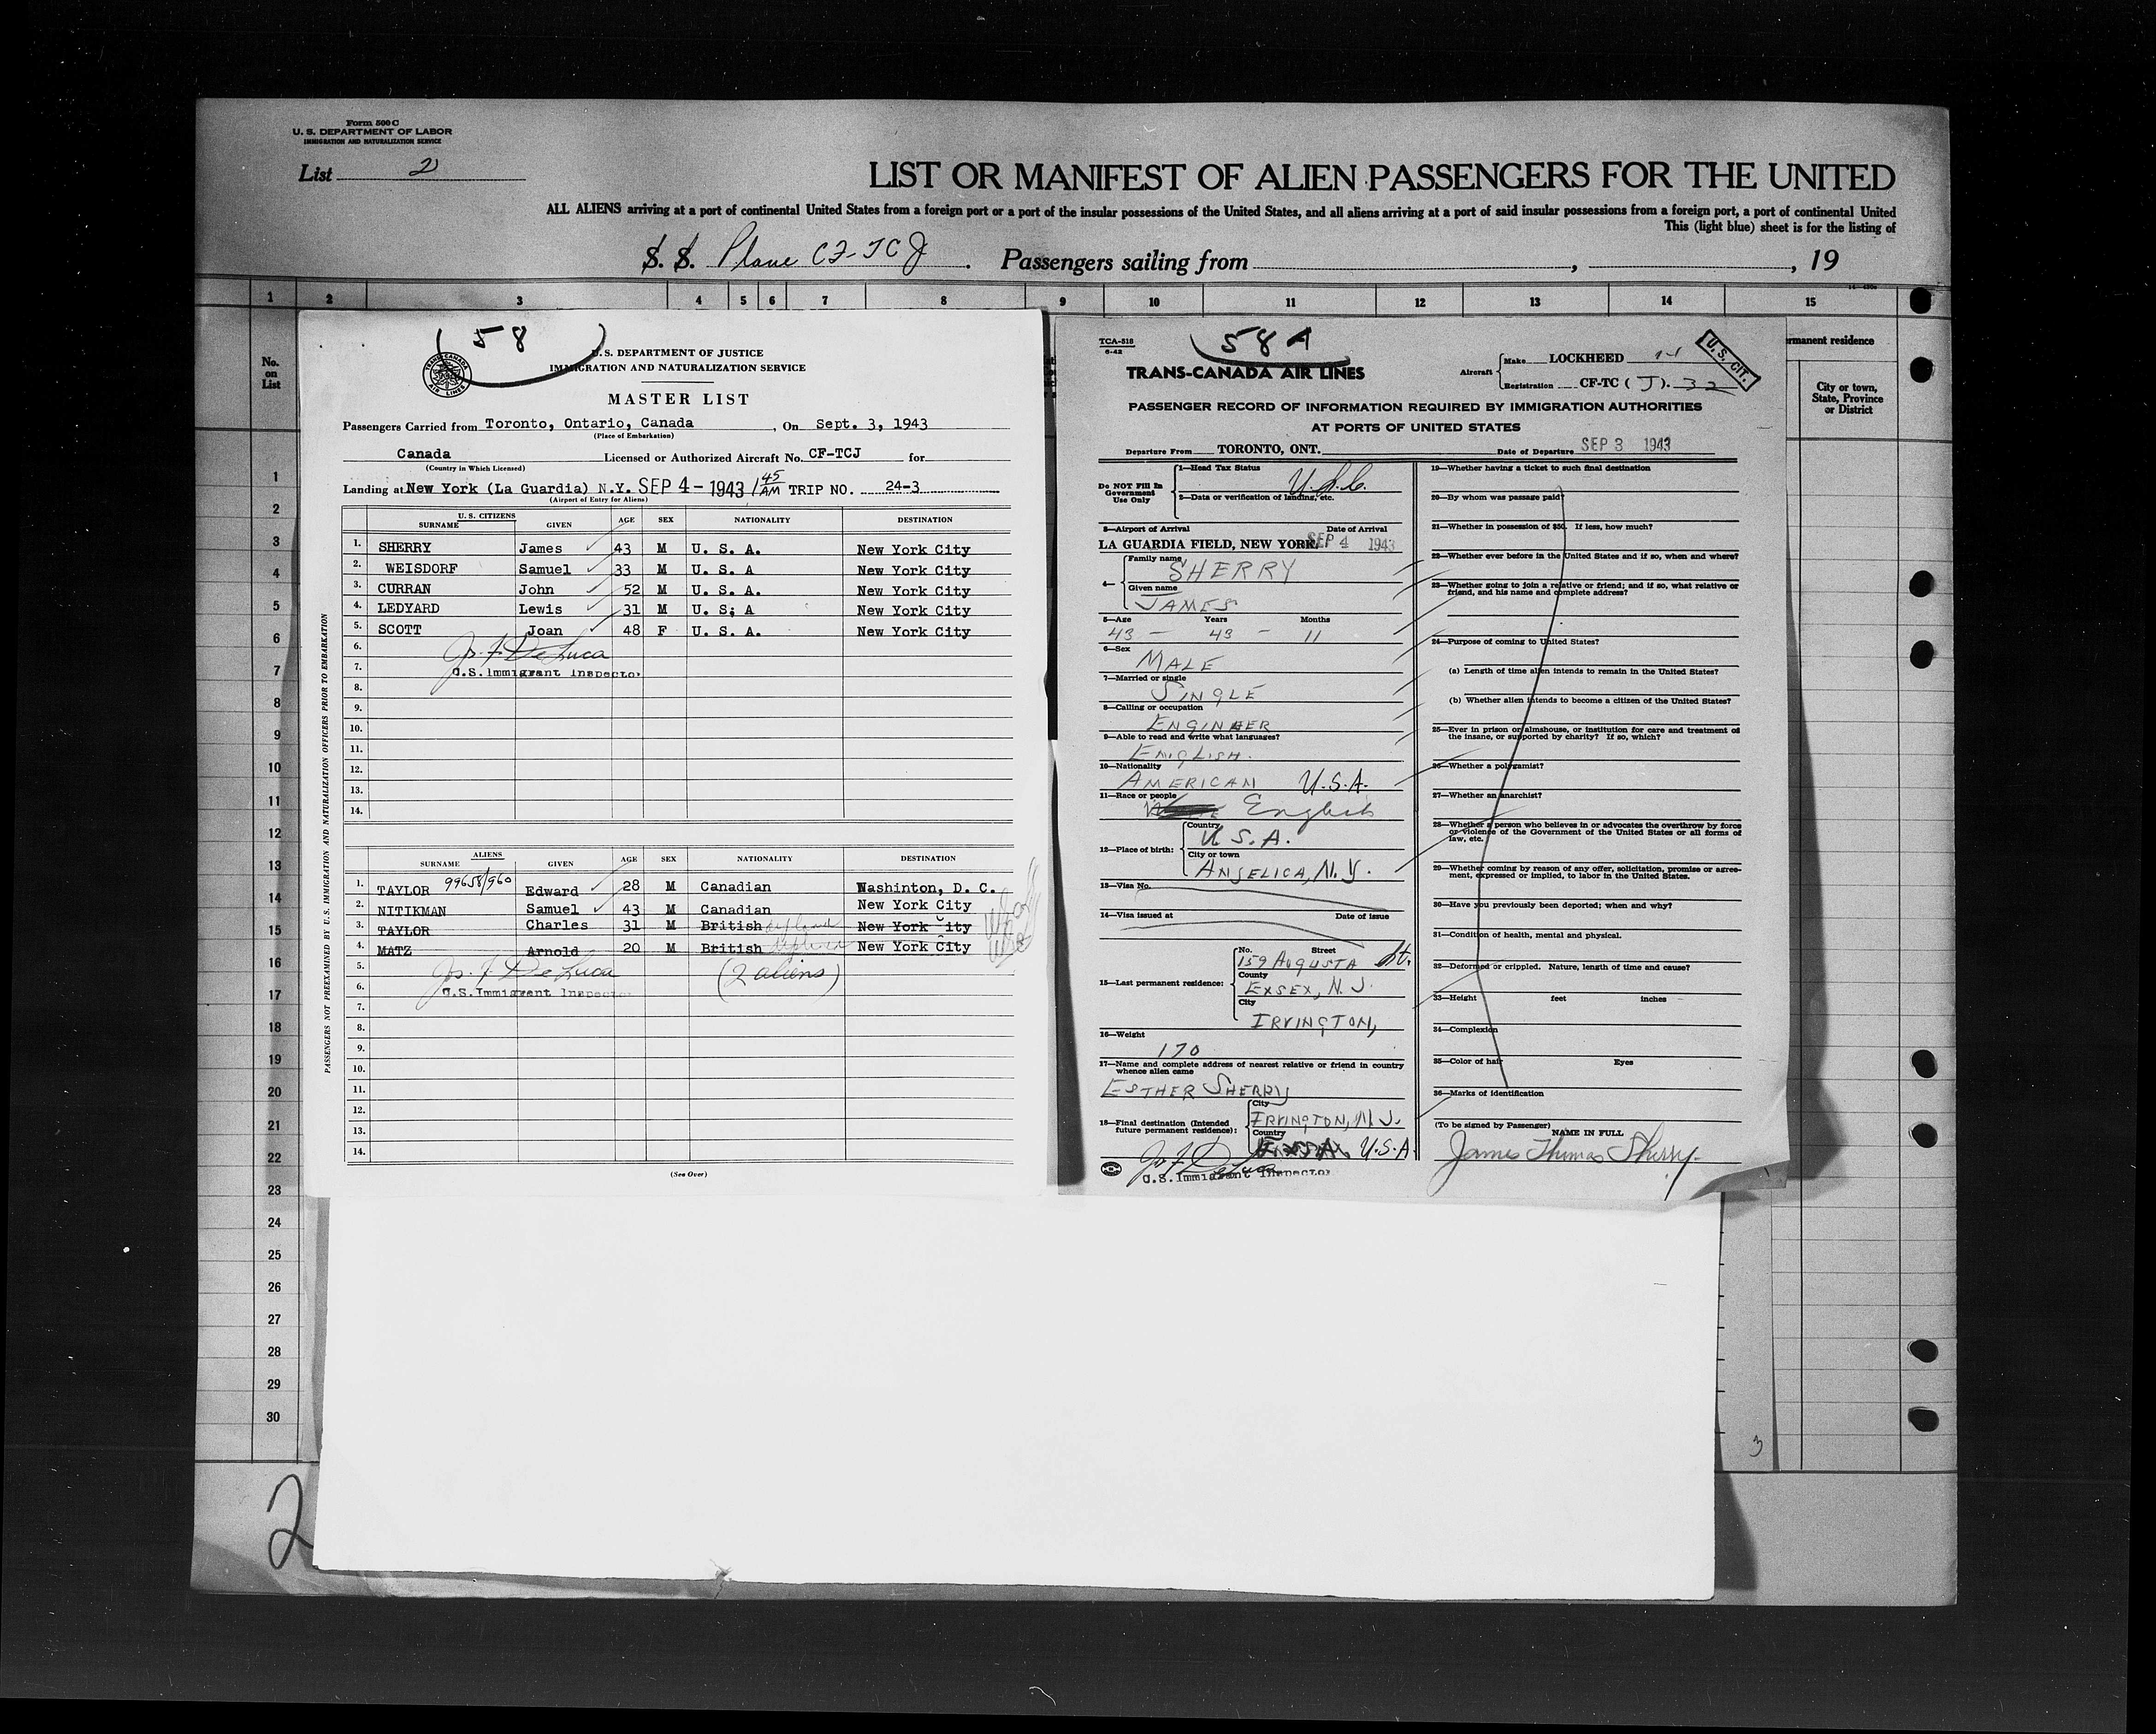 Form 500 C
U. S. DEPARTMENT OF LABOR
IMMIGRATION AND NATURALIZATION SERVICE
List 2
LIST OR MANIFEST OF ALIEN PASSENGERS FOR THE UNITED
ALL ALIENS arriving at a port of continental United States from a foreign port or a port of the insular possessions of the United States, and all aliens arriving at a port of said insular possessions from a foreign port, a port of continental United
This (light blue) sheet is for the listing of
S. S. Plane CF-TCJ. Passengers sailing from , , 19
1 2 3 4 5 6 7 8 9 10 11 12 13 14 15
No. on List
rmanent residence
City or town, State, Province or District
1
2
3
4
5
6
7
8
9
10
11
12
13
14
15
16
17
18
19
20
21
22
23
24
25
26
27
28
29
30
2
3
58
TRANS-CANADA AIR LINES
U.S. DEPARTMENT OF JUSTICE
IMMIGRATION AND NATURALIZATION SERVICE
MASTER LIST
Passengers Carried from Toronto, Ontario, Canada, On Sept. 3, 1943
(Place of Embarkation)
Canada Licensed or Authorized Aircraft No. CF-TCJ for
(Country in Which Licensed)
Landing at New York (La Guardia) N.Y. SEP 4 - 1943 1 45 AM TRIP NO. 24-3
(Airport of Entry for Aliens)
PASSENGERS NOT PREEXAMINED BY U.S. IMMIGRATION AND NATURALIZATION OFFICERS PRIOR TO EMBARKATION
U.S. CITIZENS
SURNAME GIVEN AGE SEX NATIONALITY DESTINATION
1. SHERRY James 43 M U. S. A. New York City
2. WEISDORF Samuel 33 M U. S. A New York City
3. CURRAN John 52 M U. S. A. New York City
4. LEDYARD Lewis 31 M U. S; A New York City
5. SCOTT Joan 48 F U. S. A. New York City
6. Jos. F. DeLuca
7. U.S. Immigrant Inspector
8.
9.
10.
11.
12.
13.
14.
ALIENS
SURNAME GIVEN AGE SEX NATIONALITY DESTINATION
1. TAYLOR 99658/960 Edward 28 M Canadian Washinton, D. C.
2. NITIKMAN Samuel 43 M Canadian New York City
3. TAYLOR Charles 31 M British New York City
4. MATZ Arnold 20 M British New York City
5. Jos. F. DeLuca (2 aliens)
6. U.S. Immigrant Inspector
7.
8.
9.
10.
11.
12.
13.
14.
(See Over)
TCA-518
6-42
58 A
TRANS-CANADA AIR LINES
Aircraft Make LOCKHEED 14
Registration CF-TC (J). 32
U.S. CIT.
PASSENGER RECORD OF INFORMATION REQUIRED BY IMMIGRATION AUTHORITIES
AT PORTS OF UNITED STATES
Departure From TORONTO, ONT. Date of Departure SEP 3 1943
Do NOT Fill In Government Use Only
1—Head Tax Status U.S.C.
2—Data or verification of landing, etc.
3—Airport of Arrival Date of Arrival
LA GUARDIA FIELD, NEW YORK. SEP 4 1943
4— Family name SHERRY
Given name JAMES
5—Age Years Months
43 — 43 — 11
6—Sex
MALE
7—Married or single
SINGLE
8—Calling or occupation
ENGINEER
9—Able to read and write what languages?
ENGLISH.
10—Nationality
AMERICAN U.S.A.
11—Race or people
English
12—Place of birth: Country
U.S.A.
City or town
ANGELICA, N.Y.
13—Visa No.
14—Visa issued at Date of issue
15—Last permanent residence: No. Street
159 AUGUSTA St.
County
EXSEX, N.J.
City
IRVINGTON,
16—Weight
170
17—Name and complete address of nearest relative or friend in country whence alien came
ESTHER SHERRY
18—Final destination (Intended future permanent residence): City
IRVINGTON, N.J.
Country
U.S.A.
Jos. F. DeLuca
U.S. Immigrant Inspector
19—Whether having a ticket to such final destination
20—By whom was passage paid?
21—Whether in possession of $50. If less, how much?
22—Whether ever before in the United States and if so, when and where?
23—Whether going to join a relative or friend; and if so, what relative or friend, and his name and complete address?
24—Purpose of coming to United States?
(a) Length of time alien intends to remain in the United States?
(b) Whether alien intends to become a citizen of the United States?
25—Ever in prison or almshouse, or institution for care and treatment of the insane, or supported by charity? If so, which?
26—Whether a polygamist?
27—Whether an anarchist?
28—Whether a person who believes in or advocates the overthrow by force or violence of the Government of the United States or all forms of law, etc.
29—Whether coming by reason of any offer, solicitation, promise or agreement, expressed or implied, to labor in the United States.
30—Have you previously been deported; when and why?
31—Condition of health, mental and physical.
32—Deformed or crippled. Nature, length of time and cause?
33—Height feet inches
34—Complexion
35—Color of hair Eyes
36—Marks of identification
(To be signed by Passenger) NAME IN FULL
James Thomas Sherry.